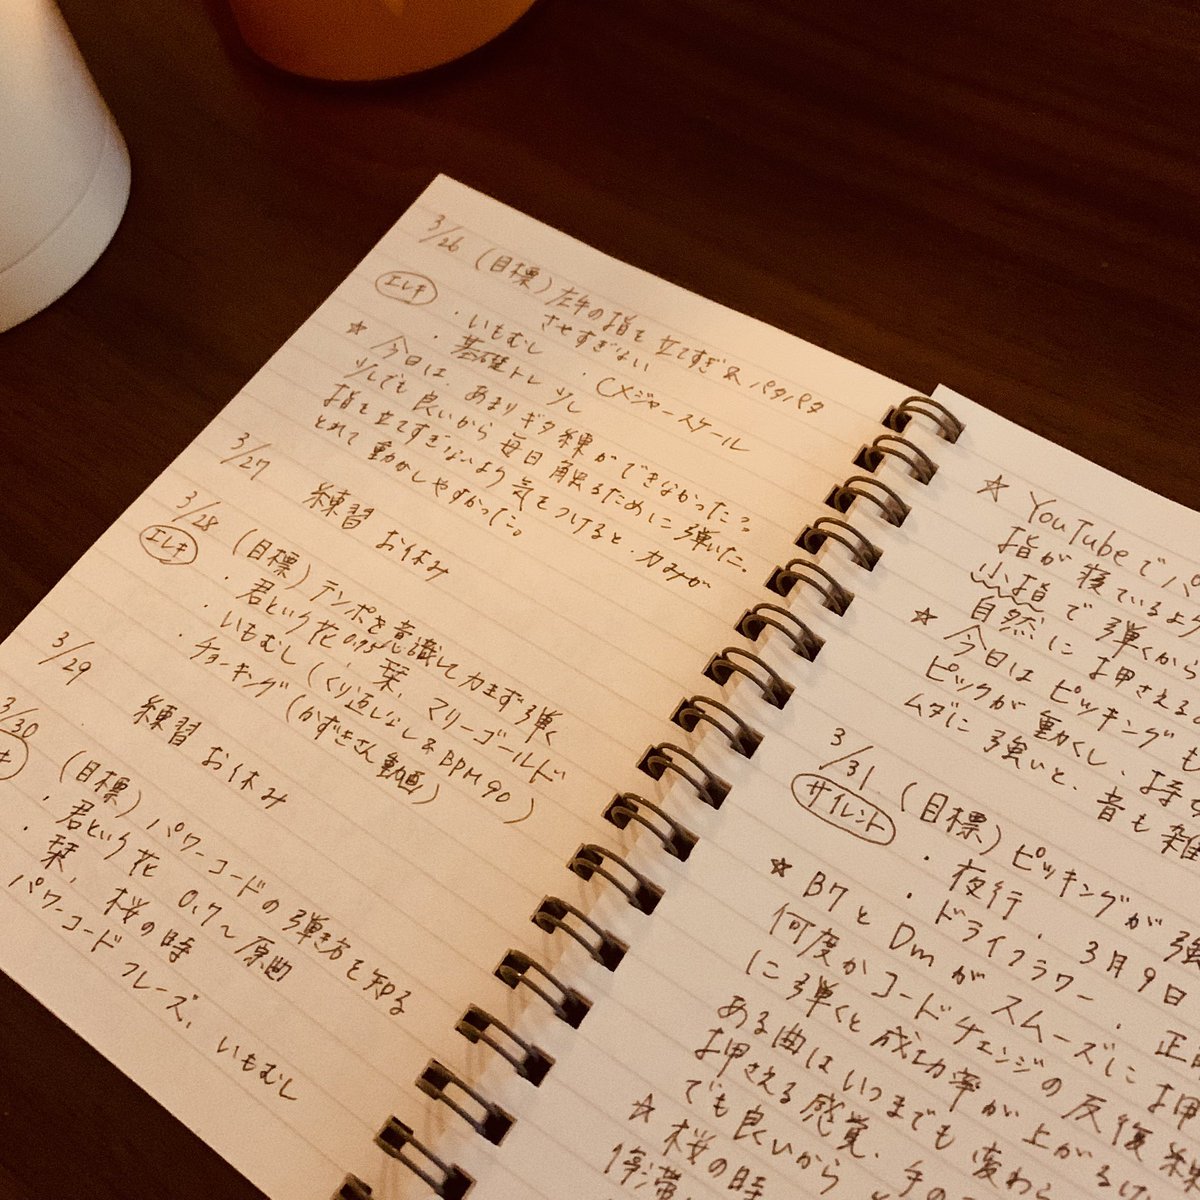 3/26 (目標) 左手の指を立てすぎ&バタバタ
させすぎない
エレキ
・いもむし ・Cメジャースケール
・基礎トレ 少し
☆ 今日は、あまりギタ練ができなかった?
少しでも良いから毎日触るために弾いた。
指を立てすぎないよう気をつけると、力みが
とれて動かしやすかった。
3/27 練習お休み
3/28 (目標) テンポを意識して力まず弾く
エレキ
・君という花 0.95、栞、マリーゴールド
・いもむし (くり返しなし&BPM90)
・チョーキング (かずきさん動画)
3/29 練習お休み
3/30 (目標) パワーコードの弾き方を知る
キ
・君という花 0.7〜原曲
・栞、桜の時
パワーコードフレーズ、いもむし
☆ YouTubeでパ
指が寝ているよう
小指で弾くから
自然に押さえる
☆ 今日はピッキングも
ピックが動くし、持
ムダに強いと、音も雑
3/31 (目標) ピッキングが強
サイレント
・夜行、3月9日
・ドライフラワー・正
☆ B7とDmがスムーズに押
何度かコードチェンジの反復練
に弾くと成功率が上がるけ
ある曲はいつまでも変わ
押さえる感覚、手の
でも良いから
☆ 桜の時
停滞